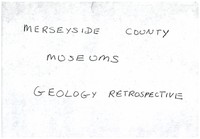 MERSEYSIDE COUNTY
MUSEUMS
GEOLOGY RETROSPECTIVE